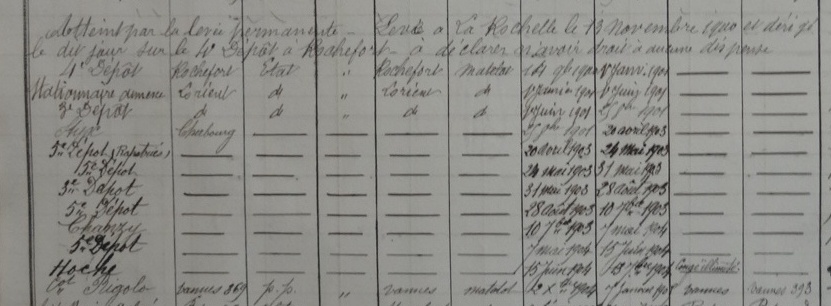 Atteint par la levée permanente - Levé à La Rochelle le 13 Novembre 1900 et dirigé
le dit jour sur le 4e Dépôt à Rochefort - a déclaré n'avoir droit à aucune dispense
4e Dépôt Rochefort Etat " Rochefort matelot 14 9bre 1900 1 Janv. 1901 — —
Stationnaire annexe Lorient d° " Lorient d° 1 Janvier 1901 1 Juin 1901 — —
3e Dépôt d° d° " d° d° 1 Juin 1901 1901 — —
Cherbourg — — — — 1901 20 avril 1903 — —
5e Dépôt (Rapatriés) — — — — — 20 avril 1903 24 mai 1903 — —
5e Dépôt — — — — — 24 mai 1903 31 mai 1903 — —
3e Dépôt — — — — — 31 mai 1903 28 août 1903 — —
5e Dépôt — — — — — 28 août 1903 10 7bre 1903 — —
Chanzy — — — — — 10 7bre 1903 7 mai 1904 — —
5e Dépôt — — — — — 7 mai 1904 15 juin 1904 — —
Hoche — — — — — 15 juin 1904 1904 Congé illimité —
Rigolo vannes 869 p.p. " vannes matelot 1904 7 Janvier vannes vannes 393